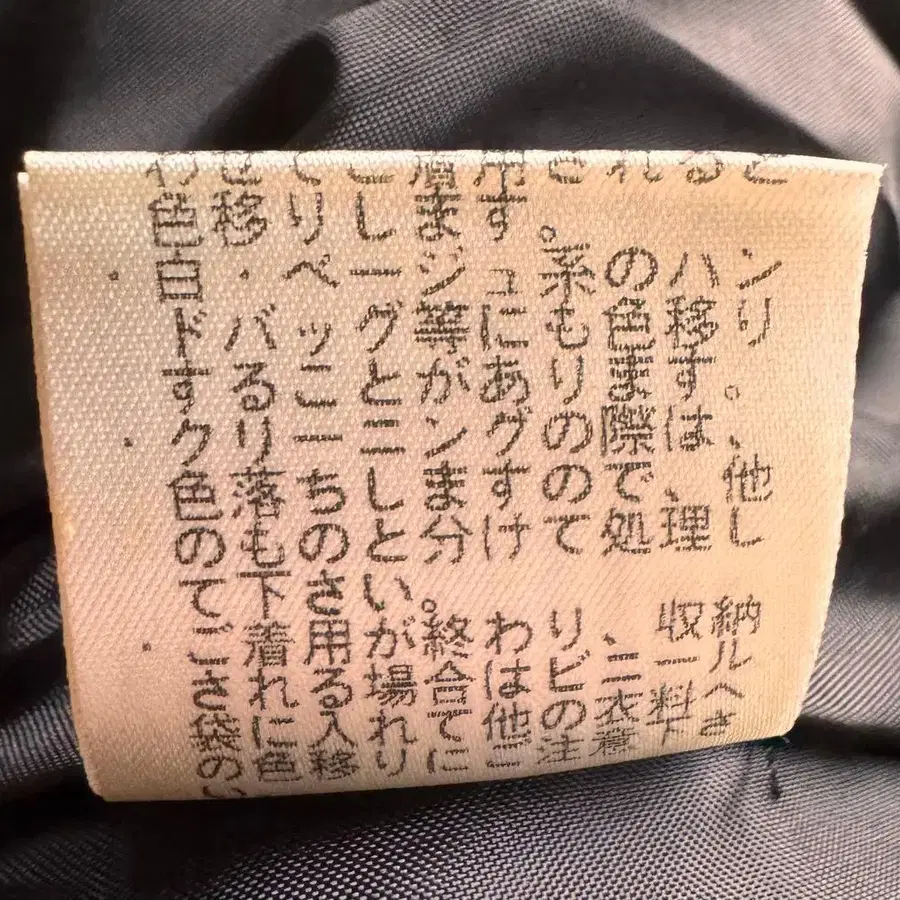 着用されると
色移りします。
白・ベージュ系のハン
ドバッグ等にも色移り
することがあります。
クリーニングの際は、
色落ちしますので、他
のものと分けて処理し
て下さい。
ご着用が終わり、収納
される場合はビニール
袋に入れて他の衣料へ
の色移りにご注意下さ
い